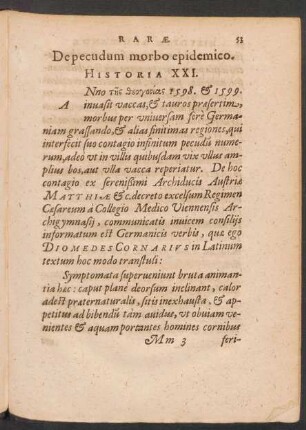 RARÆ 53
De pecudum morbo epidemico.
HISTORIA XXI.
ANno τῆς θεογονίας 1598. & 1599.
inuasit vaccas, & tauros præsertim,
morbus per vniuersam ferè Germa-
niam grassando, & alias finitimas regiones, qui
interfecit suo contagio infinitum pecudũ nume-
rum, adeo vt in villis quibusdam vix vllus am-
plius bos, aut vlla vacca reperiatur. De hoc
contagio ex serenissimi Archiducis Austriæ
MATTHIÆ &c. decreto excelsum Regimen
Cæsareum à Collegio Medico Viennensis Ar-
chigymnasij, communicatis inuicem consilijs
informatum est Germanicis verbis, quæ ego
DIOMEDES CORNARIVS in Latinum
textum hoc modo transtuli:
Symptomata superueniunt bruta animan-
tia hæc: caput planè deorsum inclinant, calor
adest præternaturalis, sitis inexhausta, & ap-
petitus ad bibendũ tam auidus, vt obuiam ve-
nientes & aquam portantes homines cornibus
Mm 3 feri-